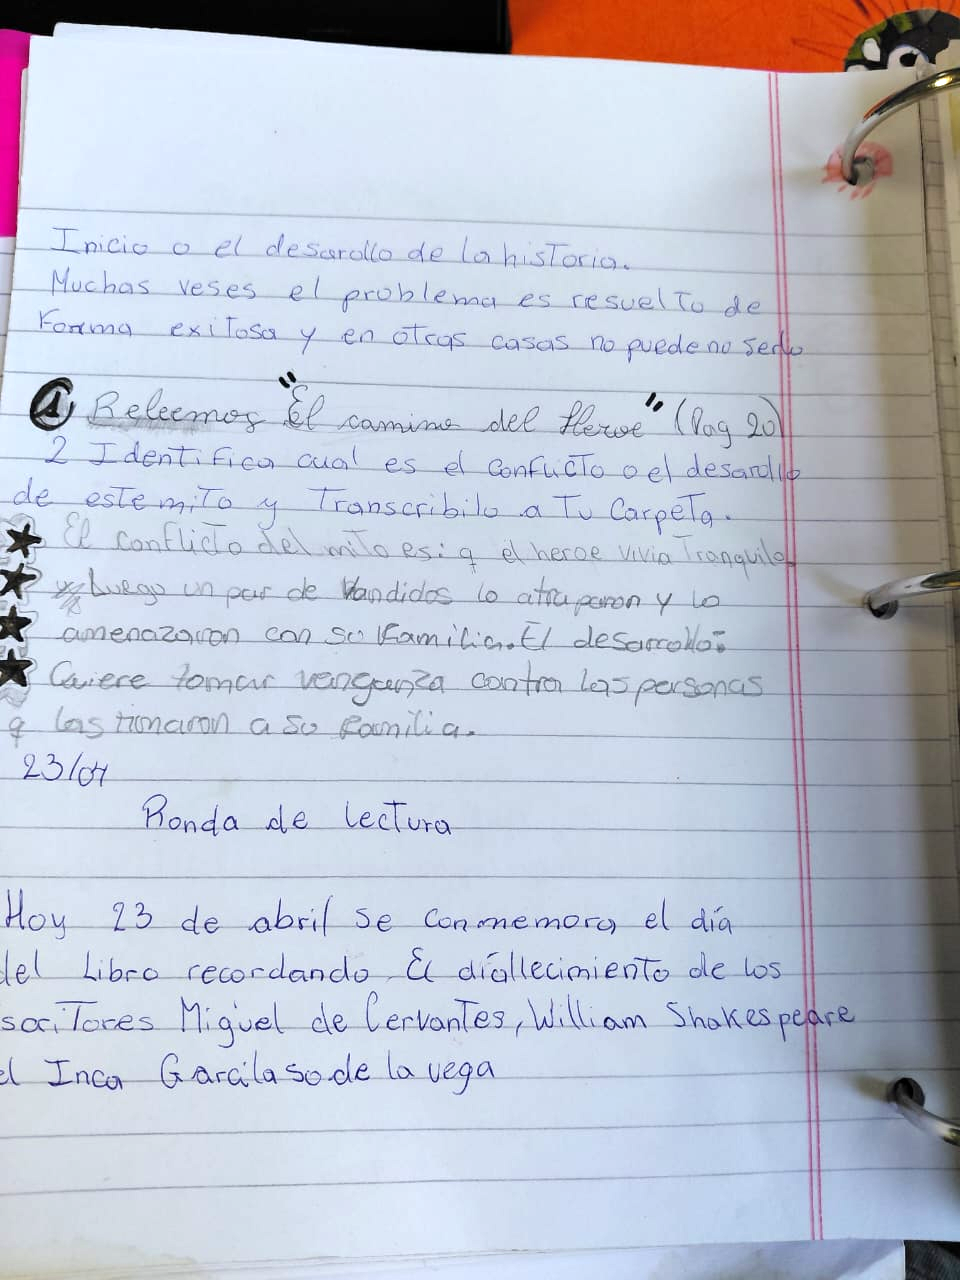 Inicio o el desarollo de la historia.
Muchas veses el problema es resuelto de
Forma exitosa y en otras casas no puede no serlo
1 Releemos "El camino del Heroe" (Pag 20)
2 Identifica cual es el conflicto o el desarollo
de este mito y Transcribilo a Tu Carpeta.
El conflicto del mito es: q el heroe vivia Tranquilo
y Luego un par de Vandidos lo atraparon y lo
amenazaron con su Familia. El desarrollo:
Quiere tomar venganza contra las personas
q lastimaron a su Familia.
23/04
Ronda de lectura
Hoy 23 de abril se conmemora el día
del Libro recordando El díallecimiento de los
scritores Miguel de Cervantes, William Shakespeare
el Inca Garcilaso de la vega